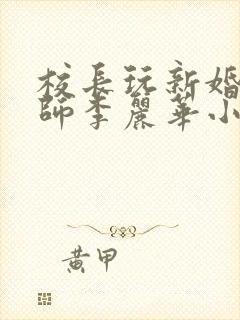 校長玩新婚
師李麗華小
黃甲